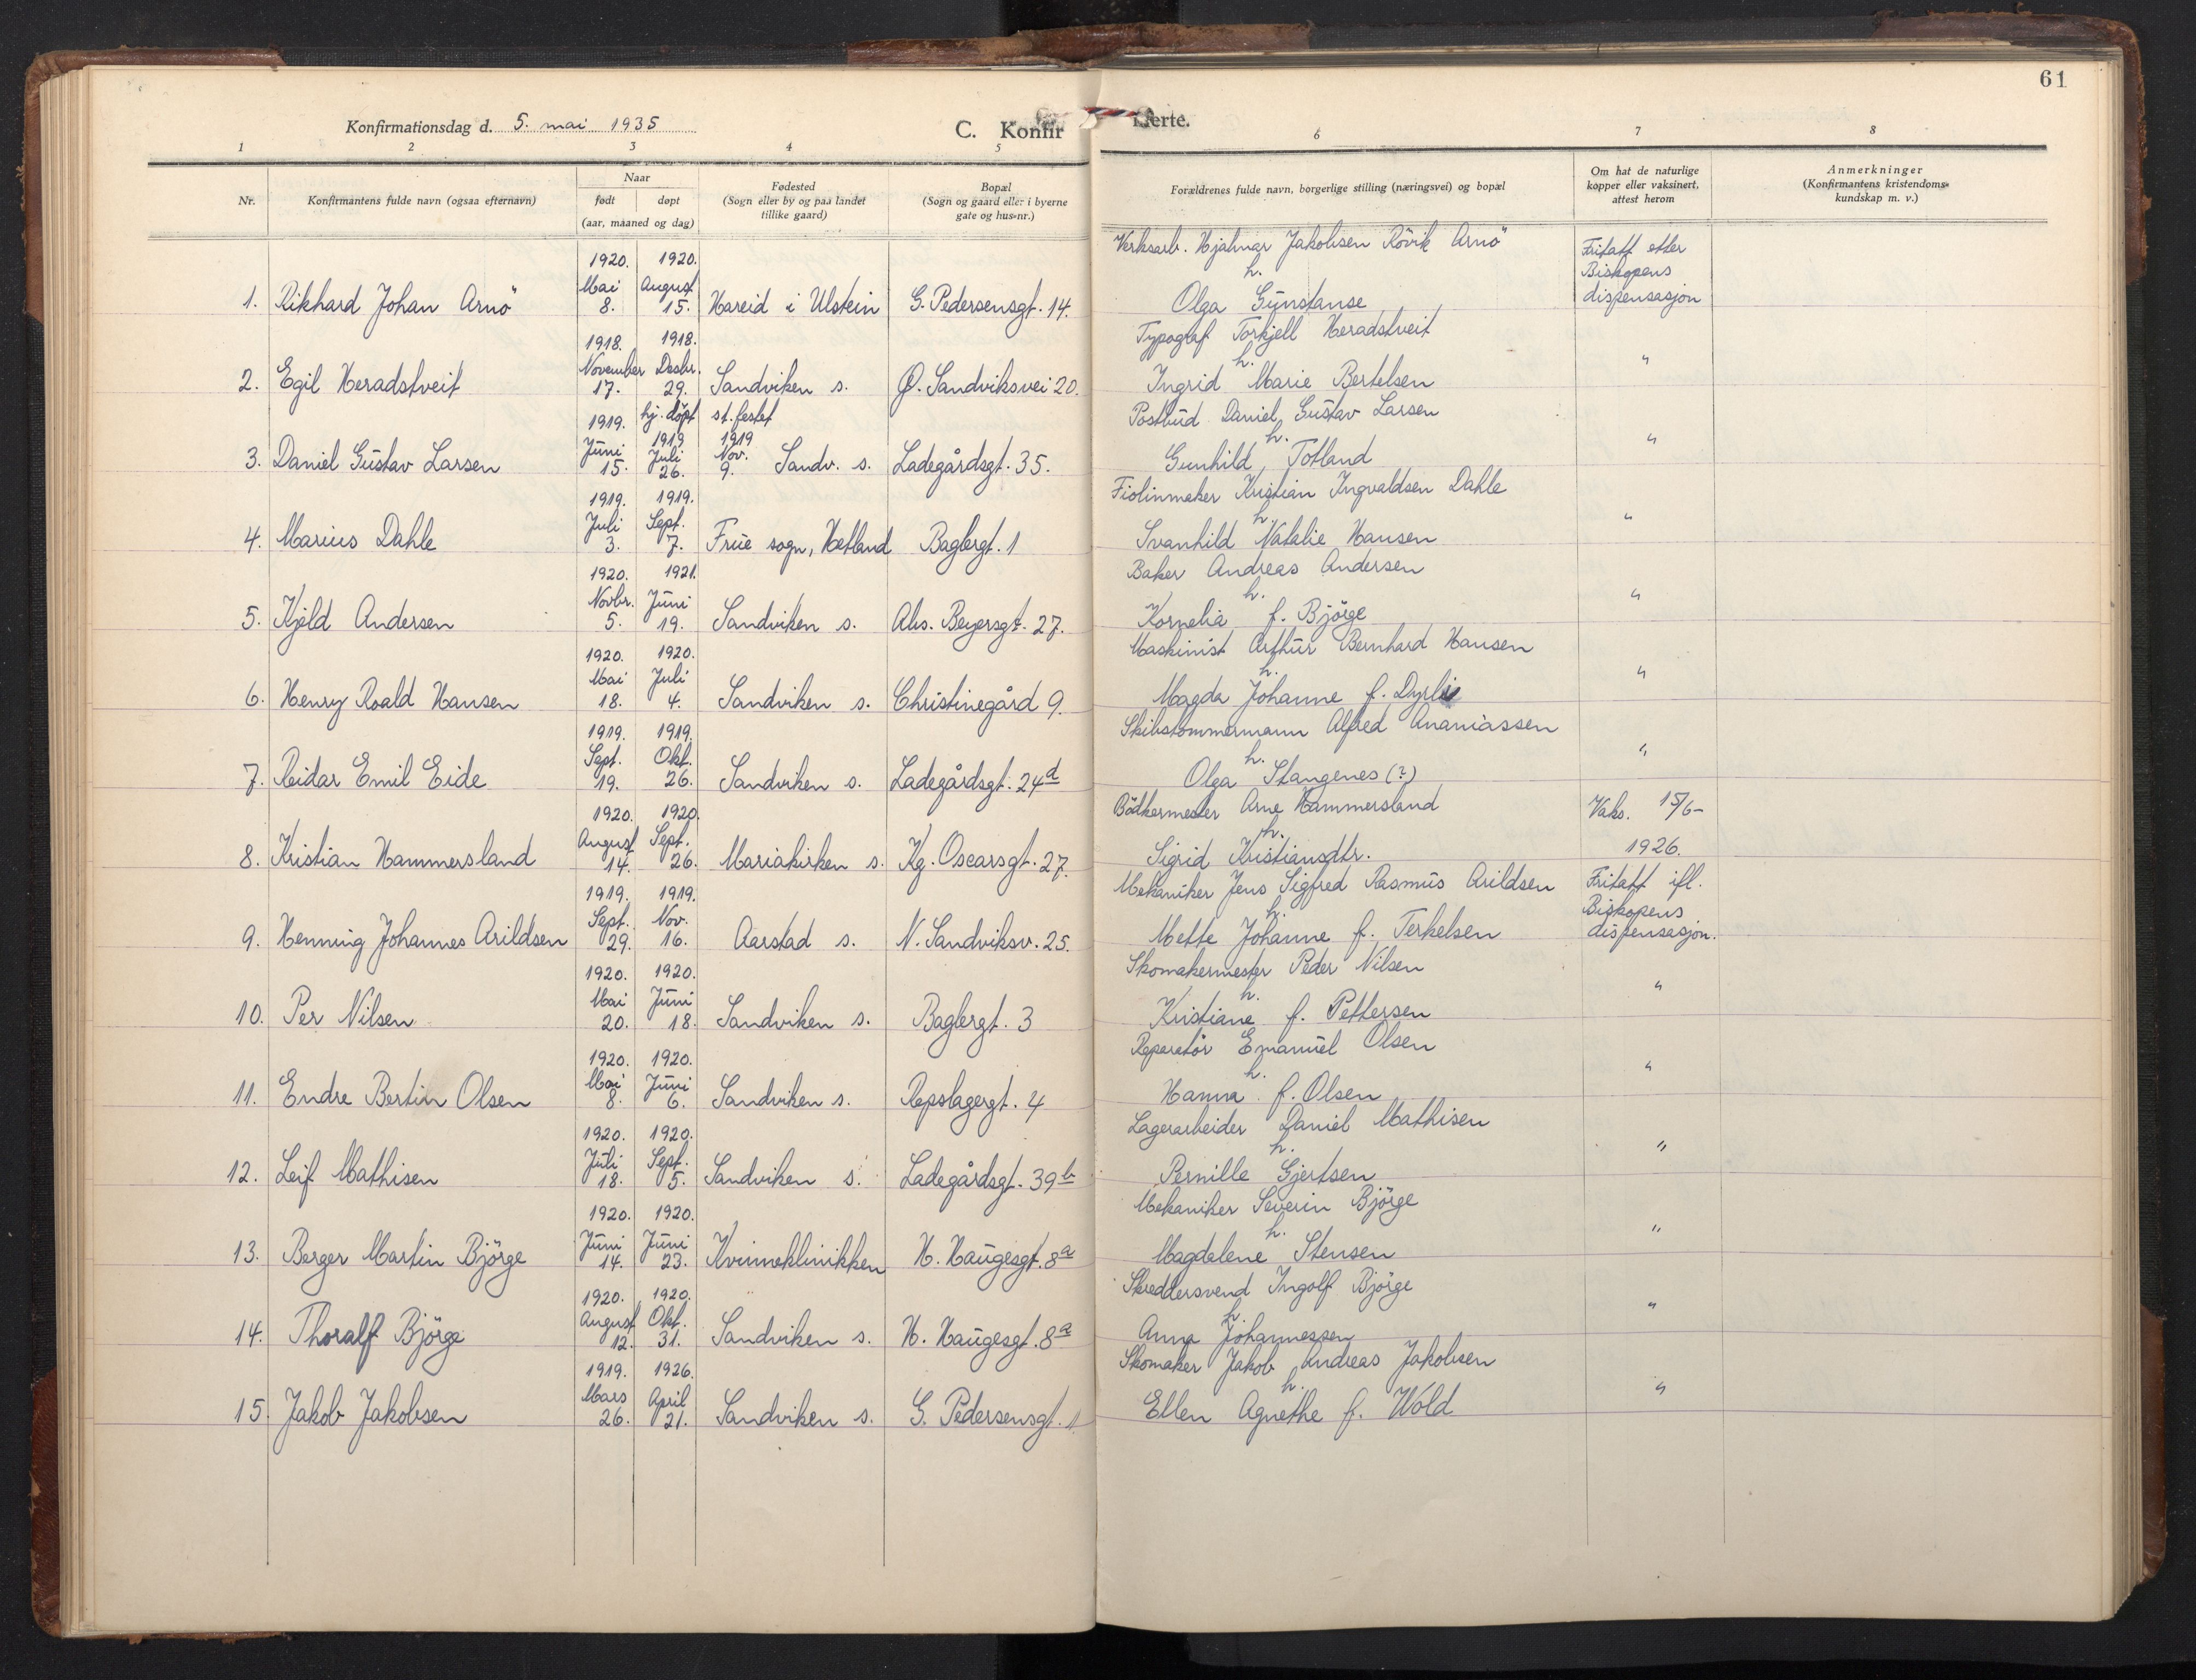 61
Konfirmationsdag d. 5. mai 1935
C. Konfir
merte.
1 2 3 4 5 6 7 8
Nr.
Konfirmantens fulde navn (ogsaa efternavn)
Naar
født døpt
(aar, maaned og dag)
Fødested
(Sogn eller by og paa landet
tillike gaard)
Bopæl
(Sogn og gaard eller i byerne
gate og hus-nr.)
Forældrenes fulde navn, borgerlige stilling (næringsvei) og bopæl
Om hat de naturlige
kopper eller vaksinert,
attest herom
Anmerkninger
(Konfirmantens kristendoms-
kundskap m. v.)
1920. 1920. Verksarb. Hjalmar Jakobsen Rövik Arnö Fritatt etter
Mai August h. Biskopens
1. Rikhard Johan Arnö 8. 15. Hareid i Ulstein G. Pedersensgt. 14. Olga Günstanse dispensasjon
1918. 1918. Typograf Torkjell Heradstveit
November Desbr. h. "
2. Egil Heradstveit 17. 29. Sandviken s. Ø. Sandviksvei 20. Ingrid Marie Bertelsen
1919. hj. döpt st. festet Postbud Daniel Gustav Larsen
Juni 1919 Juli 1919 Nov. h. "
3. Daniel Gustav Larsen 15. 26. 9. Sandv. s. Ladegårdsgt. 35. Gunhild Totland
1919. 1919. Fiolinmaker Kristian Ingvaldsen Dahle
Juli Sept. h. "
4. Marius Dahle 3. 7. Frue sogn, Hetland Baglergt. 1 Svanhild Natalie Hansen
1920. 1921. Baker Andreas Andersen
Novbr. Juni h. "
5. Kjeld Andersen 5. 19. Sandviken s. Abs. Beyersgt. 27. Kornelia f. Björge
1920. 1920. Maskinist Arthur Bernhard Hansen
Mai Juli h. "
6. Henry Roald Hansen 18. 4. Sandviken s. Christinegård 9. Magda Johanne f. Dyrli
1919. 1919. Skibstömmermann Alfred Ananiassen
Sept. Okt. h. "
7. Reidar Emil Eide 19. 26. Sandviken s. Ladegårdsgt. 24d Olga Stangenes (?)
1920. 1920. Bödkermester Arne Hammersland Vaks. 15/6-
August Sept. h.
8. Kristian Hammersland 14. 26. Mariakirken s. Kg. Oscarsgt. 27. Sigrid Kristiansdtr. 1926.
1919. 1919. Mekaniker Jens Sigfred Rasmus Arildsen Fritatt ifl.
Sept. Nov. h. Biskopens
9. Henning Johannes Arildsen 29. 16. Aarstad s. N. Sandviksv. 25. Mette Johanne f. Terkelsen dispensasjon.
1920. 1920. Skomakermester Peder Nilsen
Mai Juni h. "
10. Per Nilsen 20. 18. Sandviken s. Baglergt. 3 Kristiane f. Pettersen
1920. 1920. Reparatör Emanuel Olsen
Mai Juni h. "
11. Endre Bertin Olsen 8. 6. Sandviken s. Repslagergt. 4 Hanna f. Olsen
1920. 1920. Lagerarbeider Daniel Mathisen
Juli Sept. h. "
12. Leif Mathisen 18. 5. Sandviken s. Ladegårdsgt. 39b Pernille Gjertsen
1920. 1920. Mekaniker Severin Björge
Juni Juni h. "
13. Berger Martin Björge 14. 23. Kvinneklinikken H. Haugesgt. 8a Magdalene Stensen
1920. 1920. Skreddersvend Ingolf Björge
August Okt. h. "
14. Thoralf Björge 12. 31. Sandviken s. H. Haugesgt. 8a Anna Johannessen
1919. 1926. Skomaker Jakob Andreas Jakobsen
Mars April h. "
15. Jakob Jakobsen 26. 21. Sandviken s. G. Pedersensgt. 1 Ellen Agnethe f. Wold